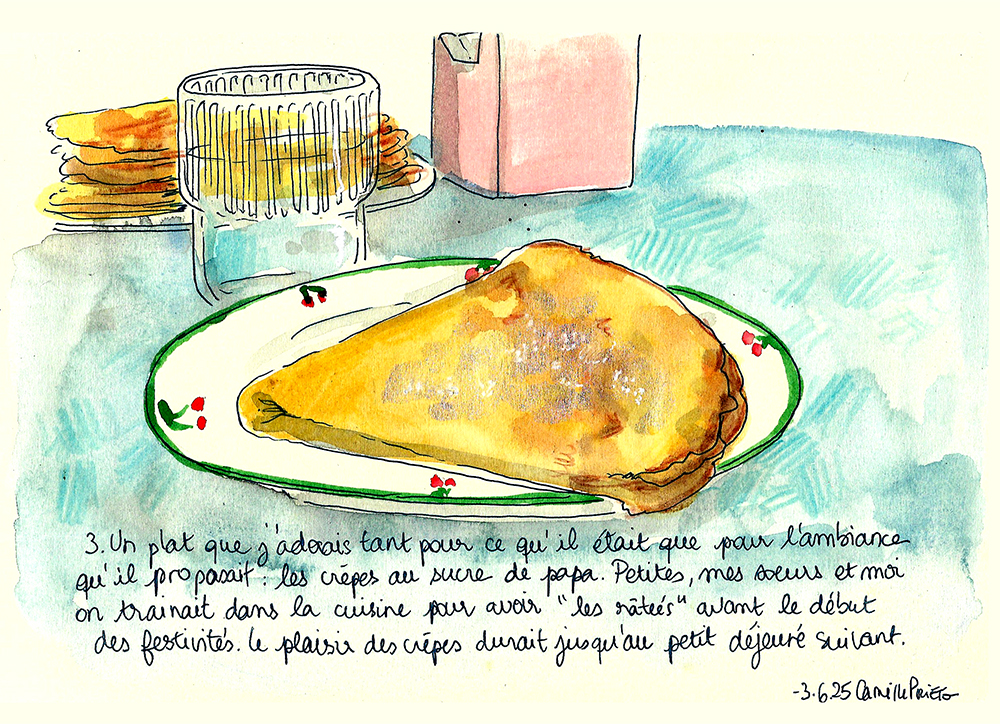 3. Un plat que j'adorais tant pour ce qu'il était que pour l'ambiance
qu'il proposait : les crêpes au sucre de papa. Petites, mes soeurs et moi
on trainait dans la cuisine pour avoir "les râteés" avant le début
des festivités. Le plaisir des crêpes durait jusqu'au petit déjeuré suivant.
-3.6.25 Camille Prieto